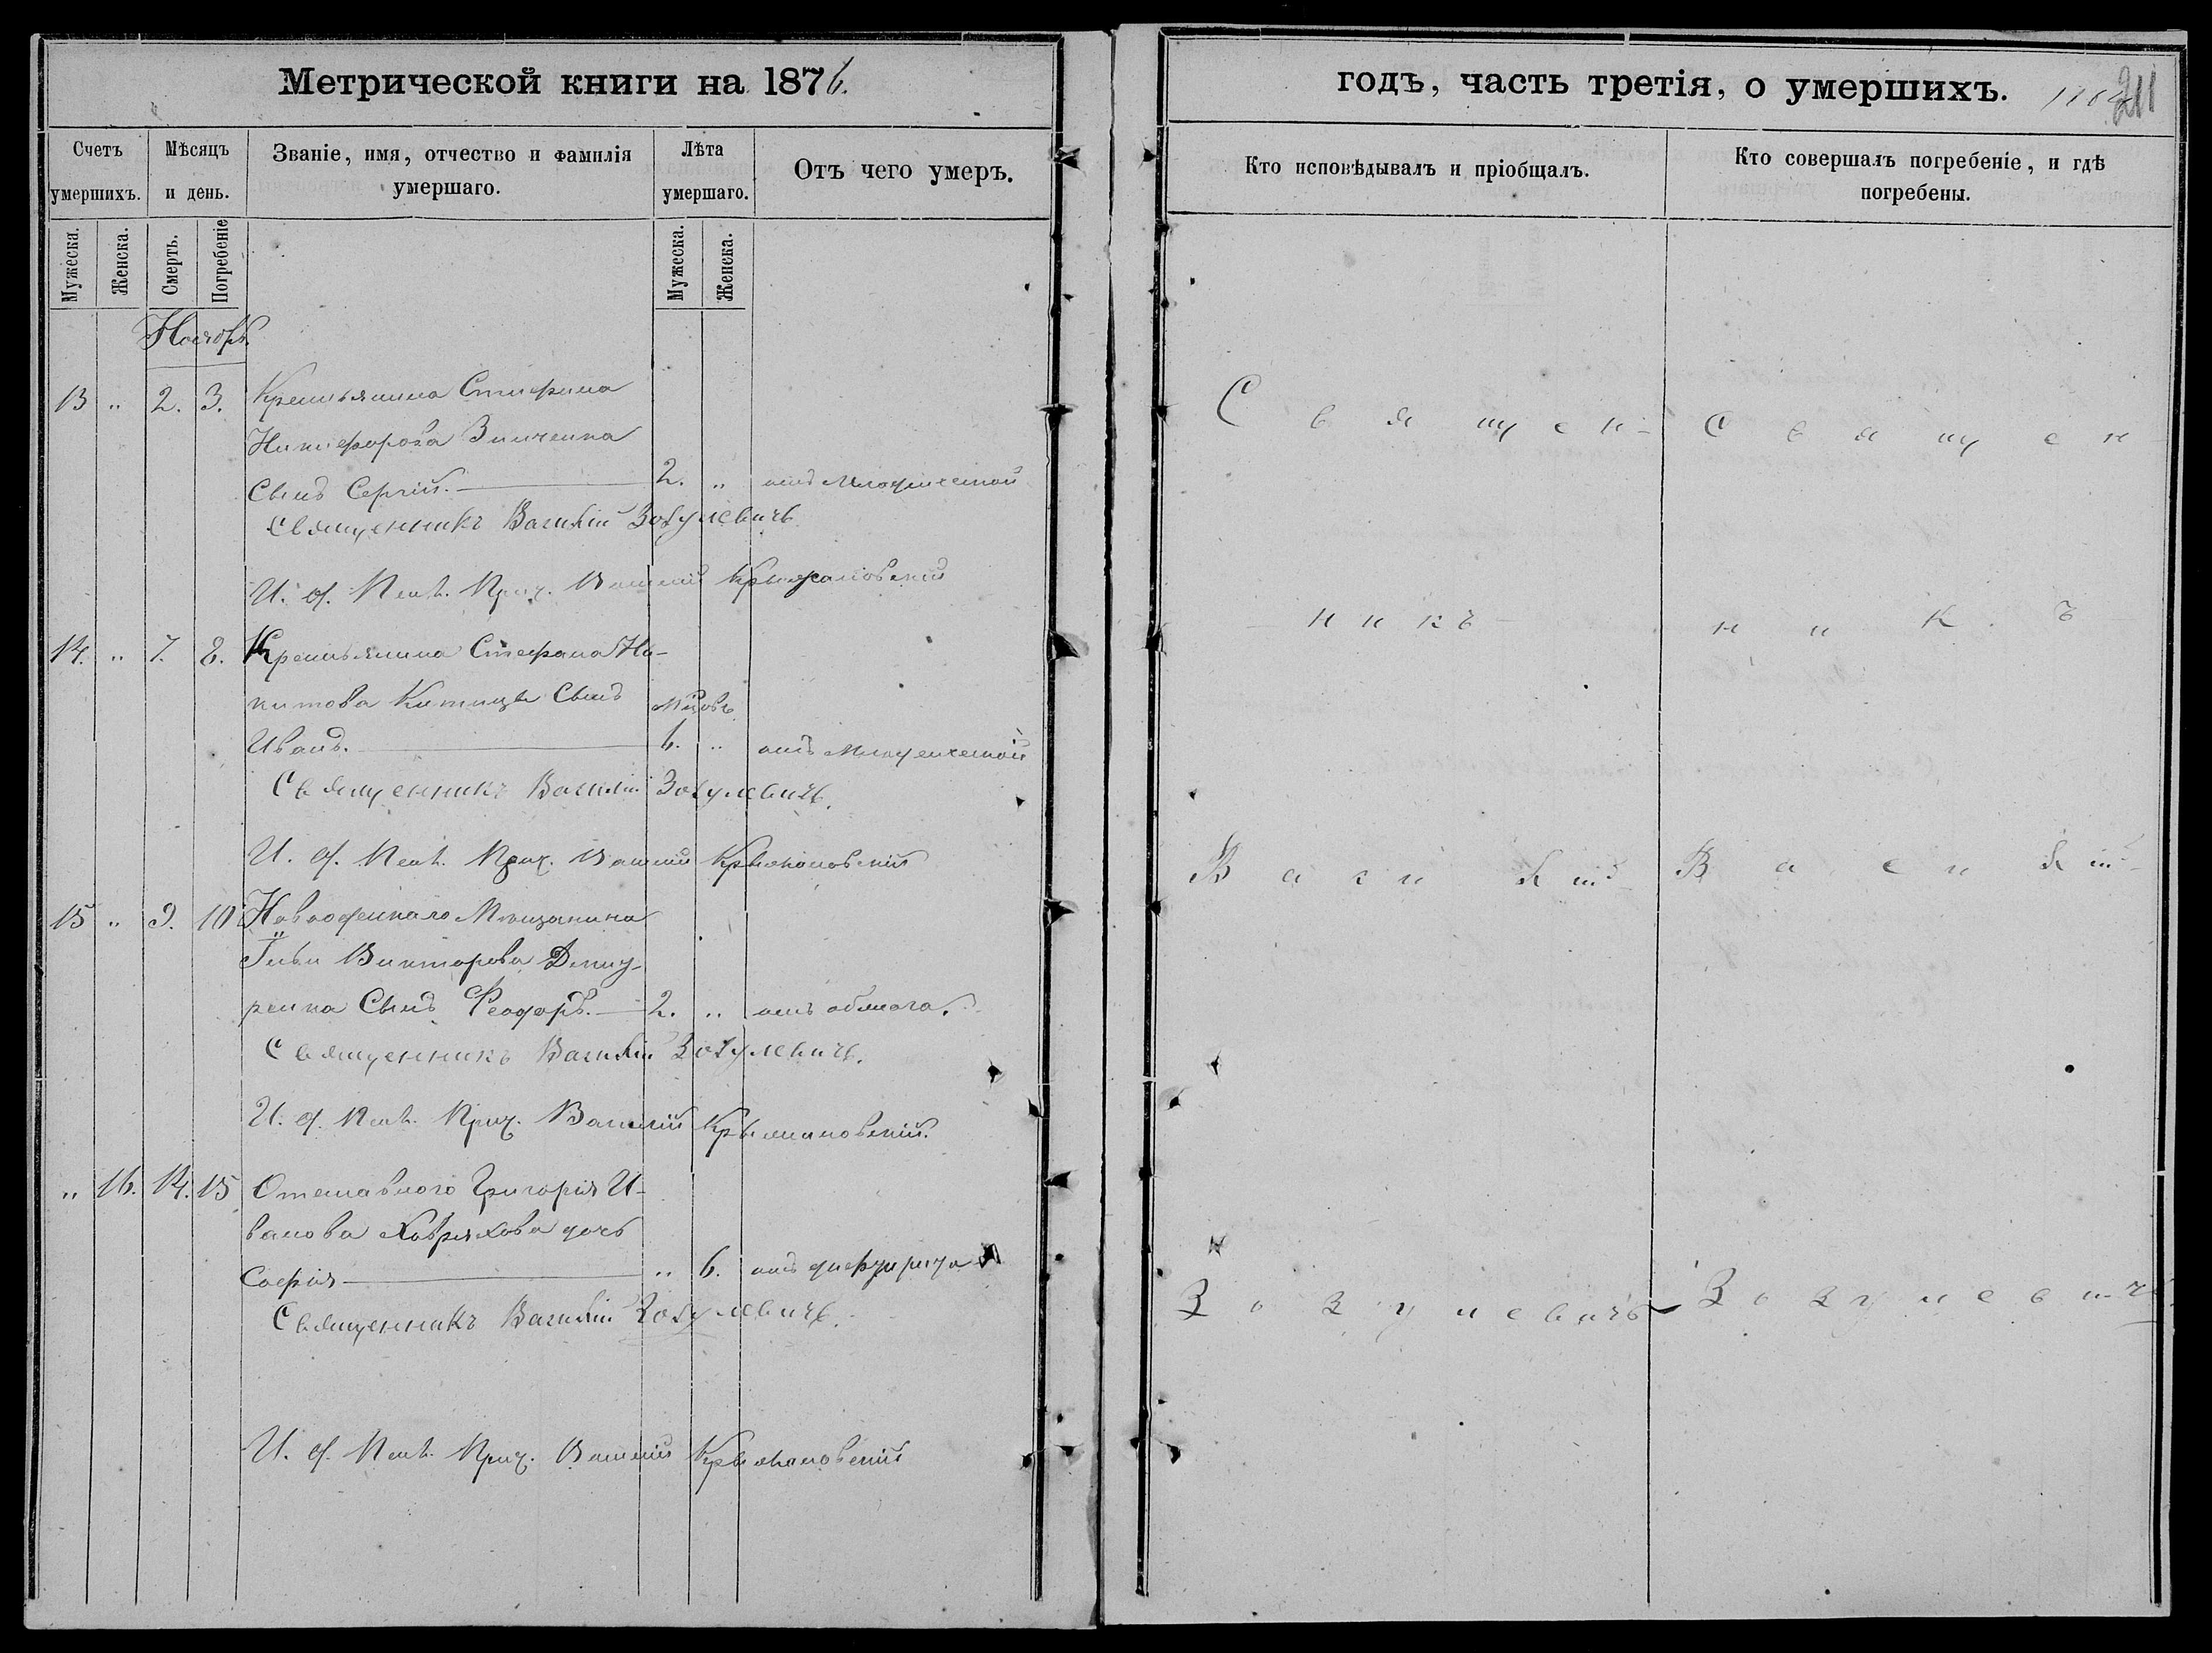 Метрической книги на 1876.
Счетъ умершихъ.
Мѣсяцъ и день.
Званіе, имя, отчество и фамилія умершаго.
Лѣта умершаго.
Отъ чего умеръ.
Мужеска.
Женска.
Смерть.
Погребеніе
Мужеска.
Женска.
Ноябрь
13 " 2. 3. Крестьянина Стефана
Никифорова Зинченка
Сынъ Сергій. 2. " отъ младенческой
Священникъ Василій Зозулевичъ
И. д. Псал. Прич. Василій Крыжановскій
14. " 7. 8. Крестьянина Стефана Ни-
китова Китицы Сынъ мѣсцовъ
Иванъ. 6. " отъ младенческой
Священникъ Василій Зозулевичъ.
И. д. Псал. Прич. Василій Крыжановскій
15 " 9. 10 Мѣщанина
Ильи Викторова
ренка Сынъ Феодоръ. 2. "
Священникъ Василій Зозулевичъ.
И. д. Псал. Прич. Василій Крыжановскій.
" 16. 14. 15 Отставного Григорія И-
ванова дочь
Софія " 6. отъ дифтерита
Священникъ Василій Зозулевичъ.
И. д. Псал. Прич. Василій Крыжановскій
годъ, часть третія, о умершихъ.
211
Кто исповѣдывалъ и пріобщалъ.
Кто совершалъ погребеніе, и гдѣ погребены.
Священ- Священ
никъ никъ
Василій Василій
Зозулевичъ Зозулевичъ